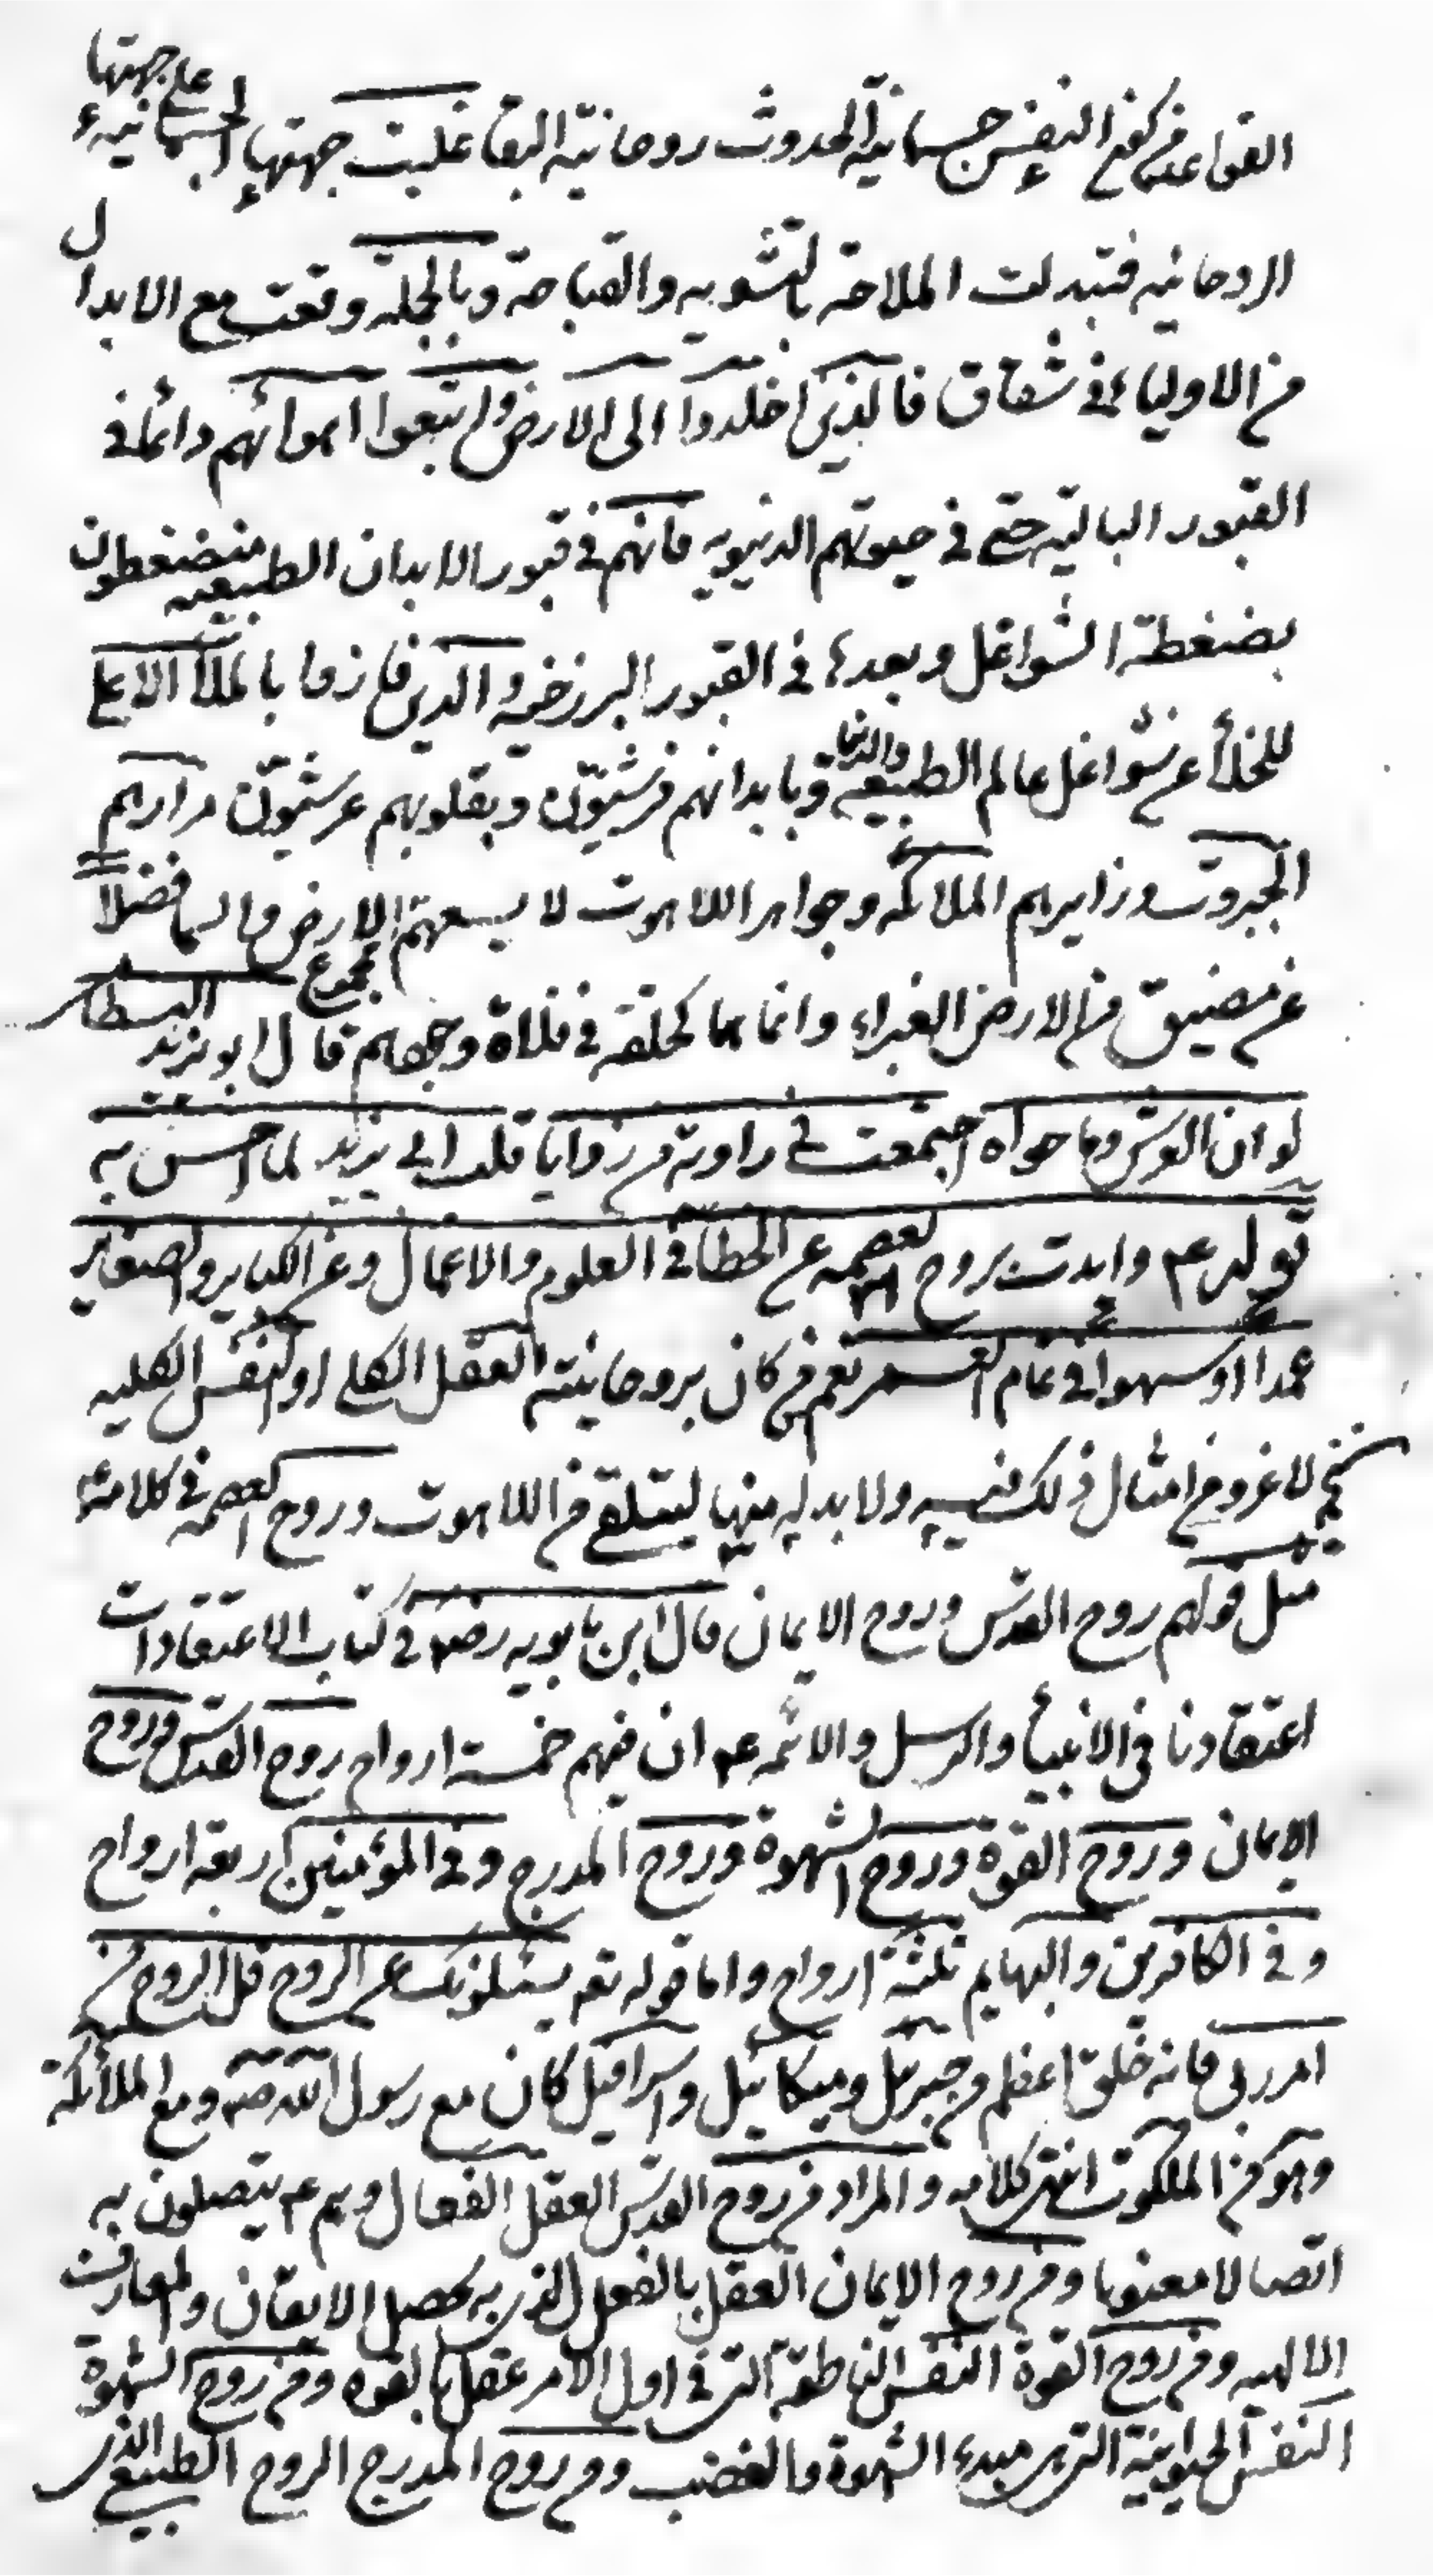 القواعد من كون النفس جسمانية الحدوث روحانية البقا غلبت جهتها الجسمانية على جهتها
الروحانيه فتبدلت الملاحة بالتشويه والقباحة وبالجملة وقعت مع الابدال
من الاولياء في شقاق فالذين اخلدوا الى الارض واتبعوا اهوائهم دائما في
القبور البالية حتى في حيوتهم الدنيويه فانهم في قبور الابدان الطبيعيه منضغطون
بضغطة الشواغل وبعدها في القبور البرزخيه والذين فازوا بالملأ الاعلى
للخلأ عن شواغل عالم الطبيعه والدنيا وبابدانهم فرشيّون وبقلوبهم عرشيّون مزارهم
الجبروت وزايرهم الملائكه وجواهر اللاهوت لا يسعهم الارض والسما فضلاً
عن مضيق من الارض الغبراء وانما هما كحلقة في فلاة وجههم قال ابو يزيد البسطامي
لو ان العرش وما حواه اجتمعت في زاوية من زوايا قلب ابي يزيد لما احس به
قوله عم وايدت بروح العصمه عن الخطأ في العلوم والاعمال وعن الكباير والصغاير
عمدا او سهوا في تمام العمر نعم من كان بروحانيته العقل الكلي او النفس الكليه
لا غرو من امثال ذلك فيه ولا بد له منها ليتلقى من اللاهوت وروح العصمه في كلامه
مثل قولهم روح القدس وروح الايمان قال ابن بابويه رضه في كتاب الاعتقادات
اعتقادنا في الانبياء والرسل والائمه عم ان فيهم خمسة ارواح روح القدس وروح
الايمان وروح القوة وروح الشهوة وروح المدرج وفي المؤمنين اربعة ارواح
وفي الكافرين والبهايم ثلثة ارواح واما قوله تعه يسئلونك عن الروح قل الروح من
امر ربي فانه خلق اعظم من جبرئيل وميكائيل واسرافيل كان مع رسول الله صه ومع الملائكة
وهو من الملكوت انتهى كلامه والمراد من روح القدس العقل الفعال وهم عم يتصلون به
اتصالا معنويا ومن روح الايمان العقل بالفعل الذي به يحصل الايقان والمعارف
الالهيه ومن روح القوة النفس الناطقة التي في اول الامر عقل بالقوه ومن روح الشهوة
النفس الحيوانية التي هي مبدء الشهوة والغضب ومن روح المدرج الروح الطبيعي الذي